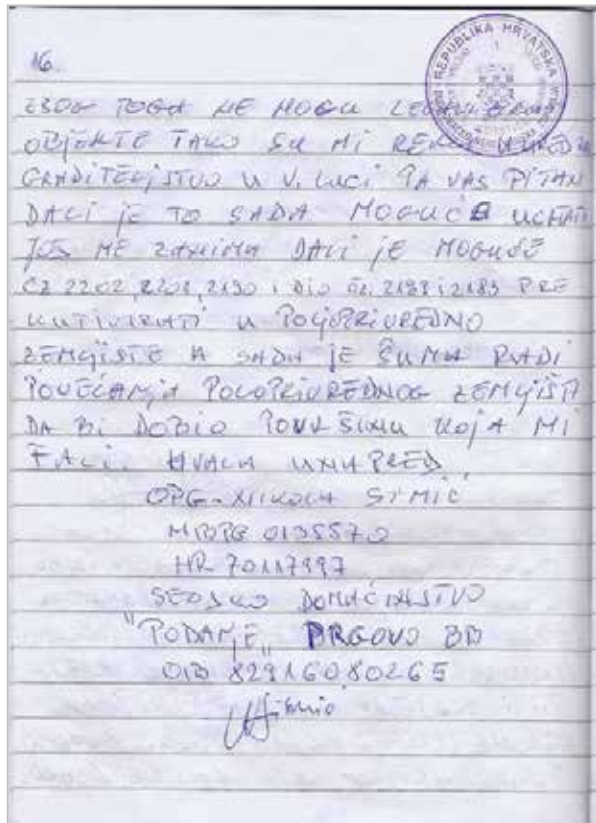 16.
REPUBLIKA HRVATSKA
ZBOG TOGA NE MOGU
OBJEKTE TAKO SU MI
GRADITELJSTVO U V. LUCI PA VAS PITAM
DALI JE TO SADA MOGUĆE
JOŠ ME ZANIMA DALI JE MOGUĆE
ČZ 2202, 2201, 2190 i DIO ČZ. 2188 i 2189 PRE
U POLJOPRIVREDNO
ZEMLJIŠTE A SADA JE ŠUMA RADI
POVEĆANJA POLOPRIVREDNOG ZEMLJIŠTA
DA BI DOBIO POVRŠINU KOJA MI
FALI. HVALA UNAPRED
OPG-NIKOLA SIMIĆ
MIBPG 0135570
HR 70117997
SEOSKO DOMAĆINSTVO
"PODANJE" PRGOVO BB
OIB 82916080265